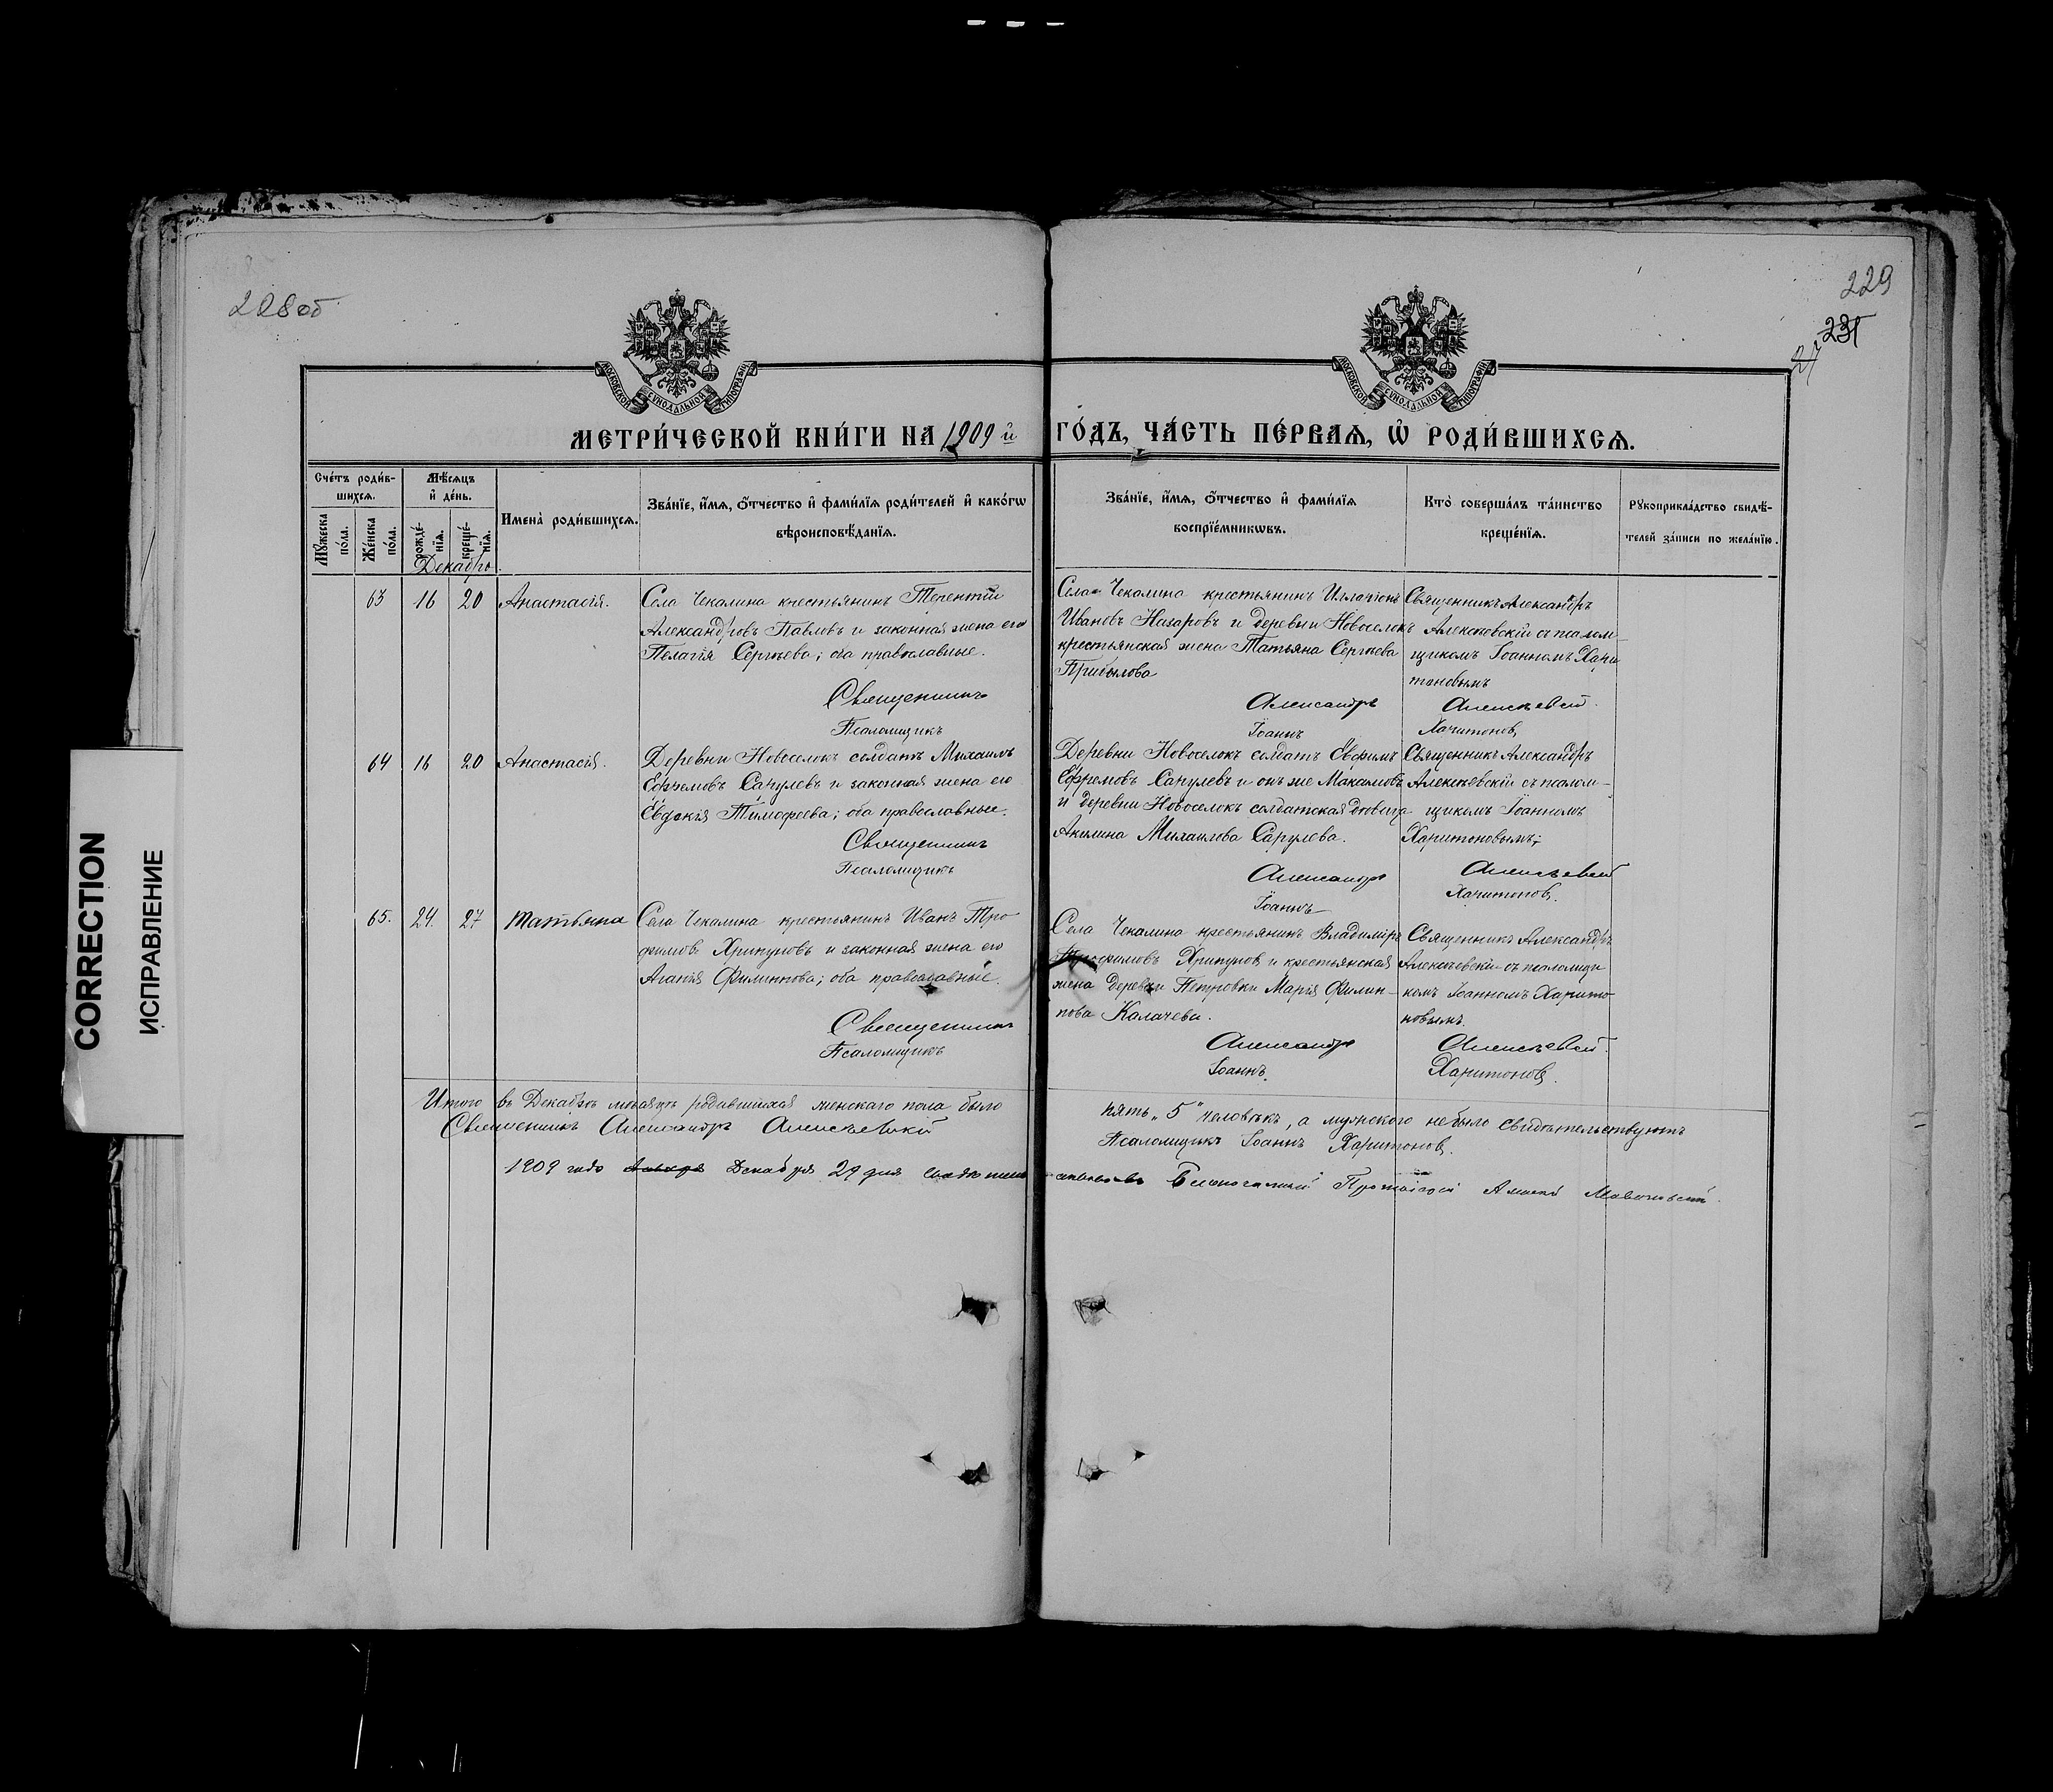 228 об
229
231
27
МОСКОВСКОЙ СѴНОДАЛЬНОЙ ТИПОГРАФІИ
МОСКОВСКОЙ СѴНОДАЛЬНОЙ ТИПОГРАФІИ
МЕТРИ́ЧЕСКОЙ КНИ́ГИ НА 1909 й ГО́ДЪ, ЧА́СТЬ ПЕ́РВАѦ, Ѡ РОДИ́ВШИХСѦ.
Сче́тъ роди́в-
шихсѧ.
Мѣ́сѧцъ
и де́нь.
Мꙋ́жеска по́ла.
Же́нска по́ла.
рожде́нїѧ.
креще́нїѧ.
Имена̀ роди́вшихсѧ.
Зва́нїе, и́мѧ, ѻ́тчество и фами́лїѧ роди́телей и како́гѡ
вѣроисповѣ́данїѧ.
Зва́нїе, и́мѧ, ѻ́тчество и фами́лїѧ
воспрїе́мникѡвъ.
Кто̀ соверша́лъ та́инство
креще́нїѧ.
Рꙋкоприкла́дство свидѣ́-
телей за́писи по жела́нїю.
Декабрь.
63 16 20 Анастасія.
Села Чекалина крестьянинъ Терентій
Александровъ Павловъ и законная жена его
Пелагія Сергѣева; оба православные.
Священникъ
Псаломщикъ
Села Чекалина крестьянинъ Илларіонъ
Ивановъ Назаровъ и деревни Новоселокъ
крестьянская жена Татьяна Сергѣева
Прибылова
Александръ
Іоаннъ
Священникъ Александръ
Алексѣевскій съ псалом-
щикомъ Іоанномъ Хари
тоновымъ
Алексѣевскій.
Харитоновъ
64 16 20 Анастасія.
Деревни Новоселокъ солдатъ Михаилъ
Ефремовъ Сапулевъ и законная жена его
Евдокія Тимофеева; оба православные.
Священникъ
Псаломщикъ
Деревни Новоселокъ солдатъ Ефимъ
Ефремовъ Сапулевъ и онъ же Максимовъ
и деревни Новоселокъ солдатская
Акилина Михаилова Сапулева.
Александръ
Іоаннъ
Священникъ Александръ
Алексѣевскій съ псалом-
щикомъ Іоанномъ
Харитоновымъ;
Алексѣевскій
Харитоновъ.
65. 24. 27 Татьяна
Села Чекалина крестьянинъ Иванъ Тро
фимовъ Хрипуновъ и законная жена его
Агапія Филиппова; оба православные.
Священникъ
Псаломщикъ
Села Чекалина крестьянинъ Владиміръ
Трофимовъ Хрипуновъ и крестьянская
жена деревни Петровки Марія Филип-
пова Калачева.
Александръ
Іоаннъ.
Священникъ Александръ
Алексѣевскій съ псаломщи
комъ Іоанномъ Харито
новымъ.
Алексѣевскій.
Харитоновъ.
Итого въ Декабрѣ мѣсяцѣ родившихся женскаго пола было пять „5" человѣкъ, а мужскаго небыло свидѣтельствуютъ
Священникъ Александръ Алексѣевскій Псаломщикъ Іоаннъ Харитоновъ.
1909 года Декабря 29 дня Благочинный Протоіерей
CORRECTION
ИСПРАВЛЕНИЕ